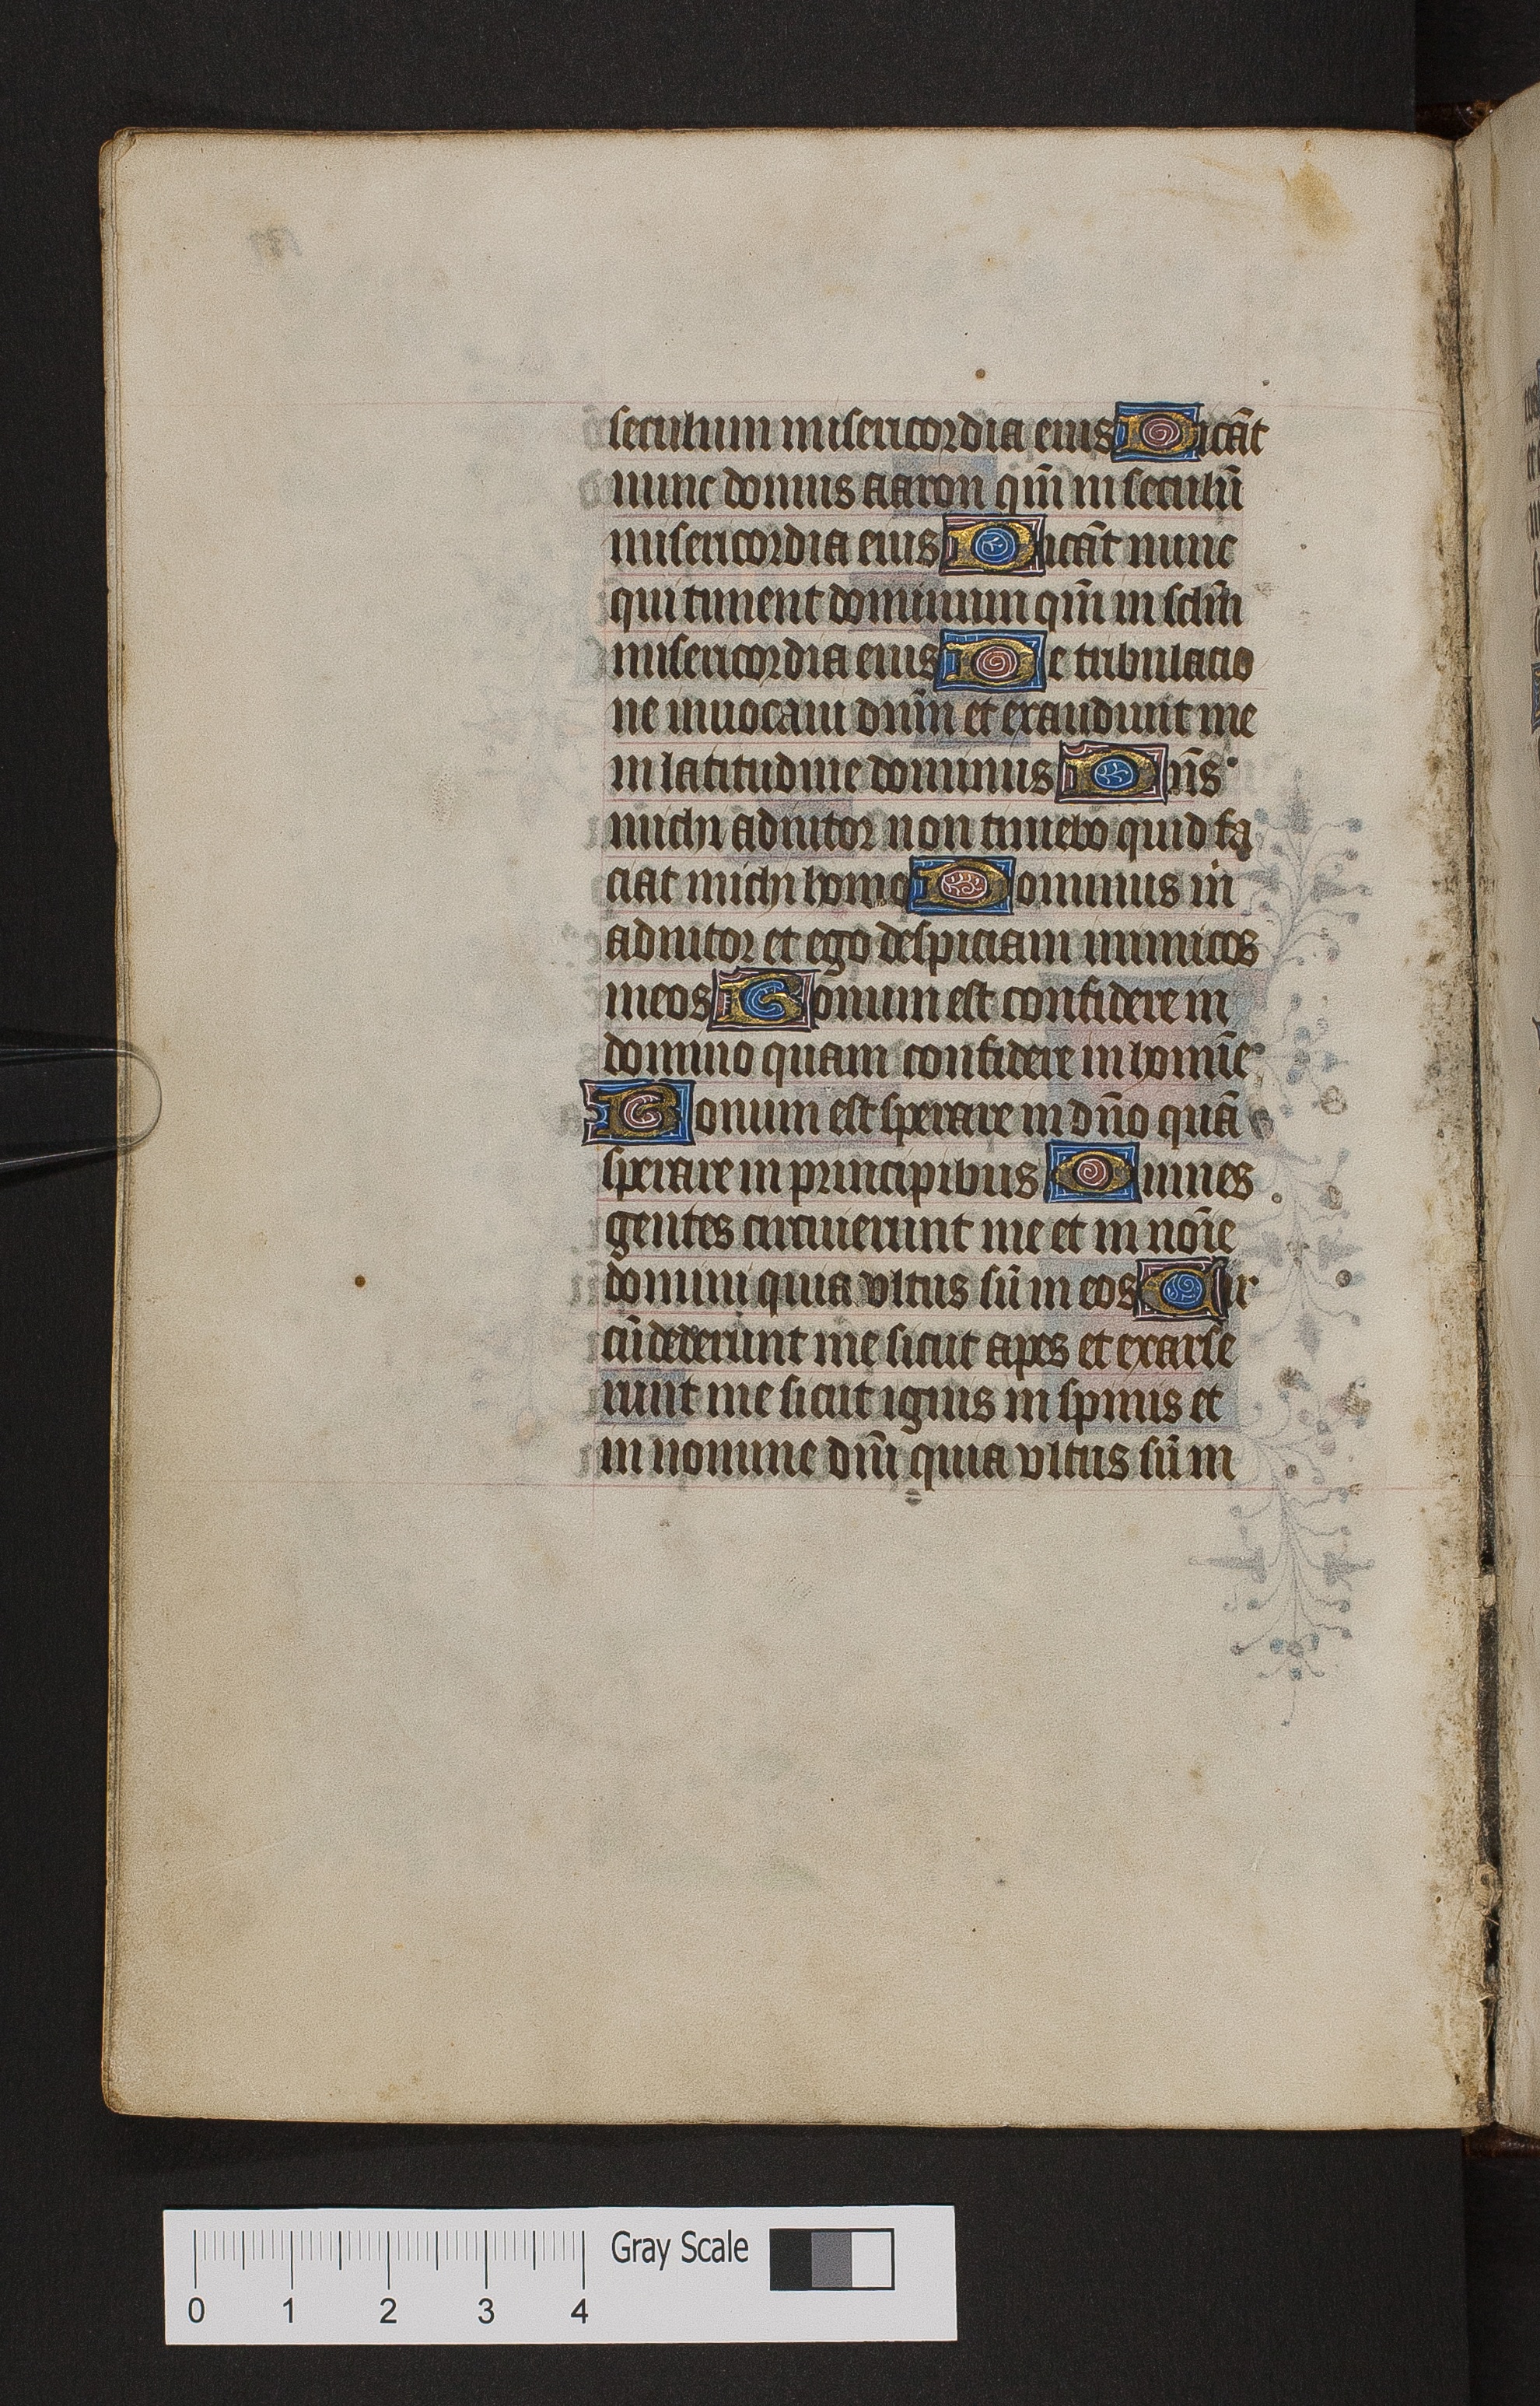 seculum misericordia eius Dicāt
nunc domus aaron qm̄ in seculū
misericordia eius Dicāt nunc
qui timent dominum qm̄ in sclm̄
misericordia eius De tribulacio
ne inuocaui dnm̄ et exaudiuit me
in latitudine dominus Dn̄s
michi adiutor non timebo quid fa
ciat michi homo Dominus m̄
adiutor et ego despiciam inimicos
meos Bonum est confidere in
domino quam confidere in homīe
Bonum est sperare in dn̄o quā
sperare in principibus Omnes
gentes circuierunt me et in noīe
domini quia vltus sū in eos Cir
cūdederunt me sicut apes et exarse
runt me sicut ignis in spinis et
in nomine dnī quia vltus sū in
Gray Scale
0 1 2 3 4